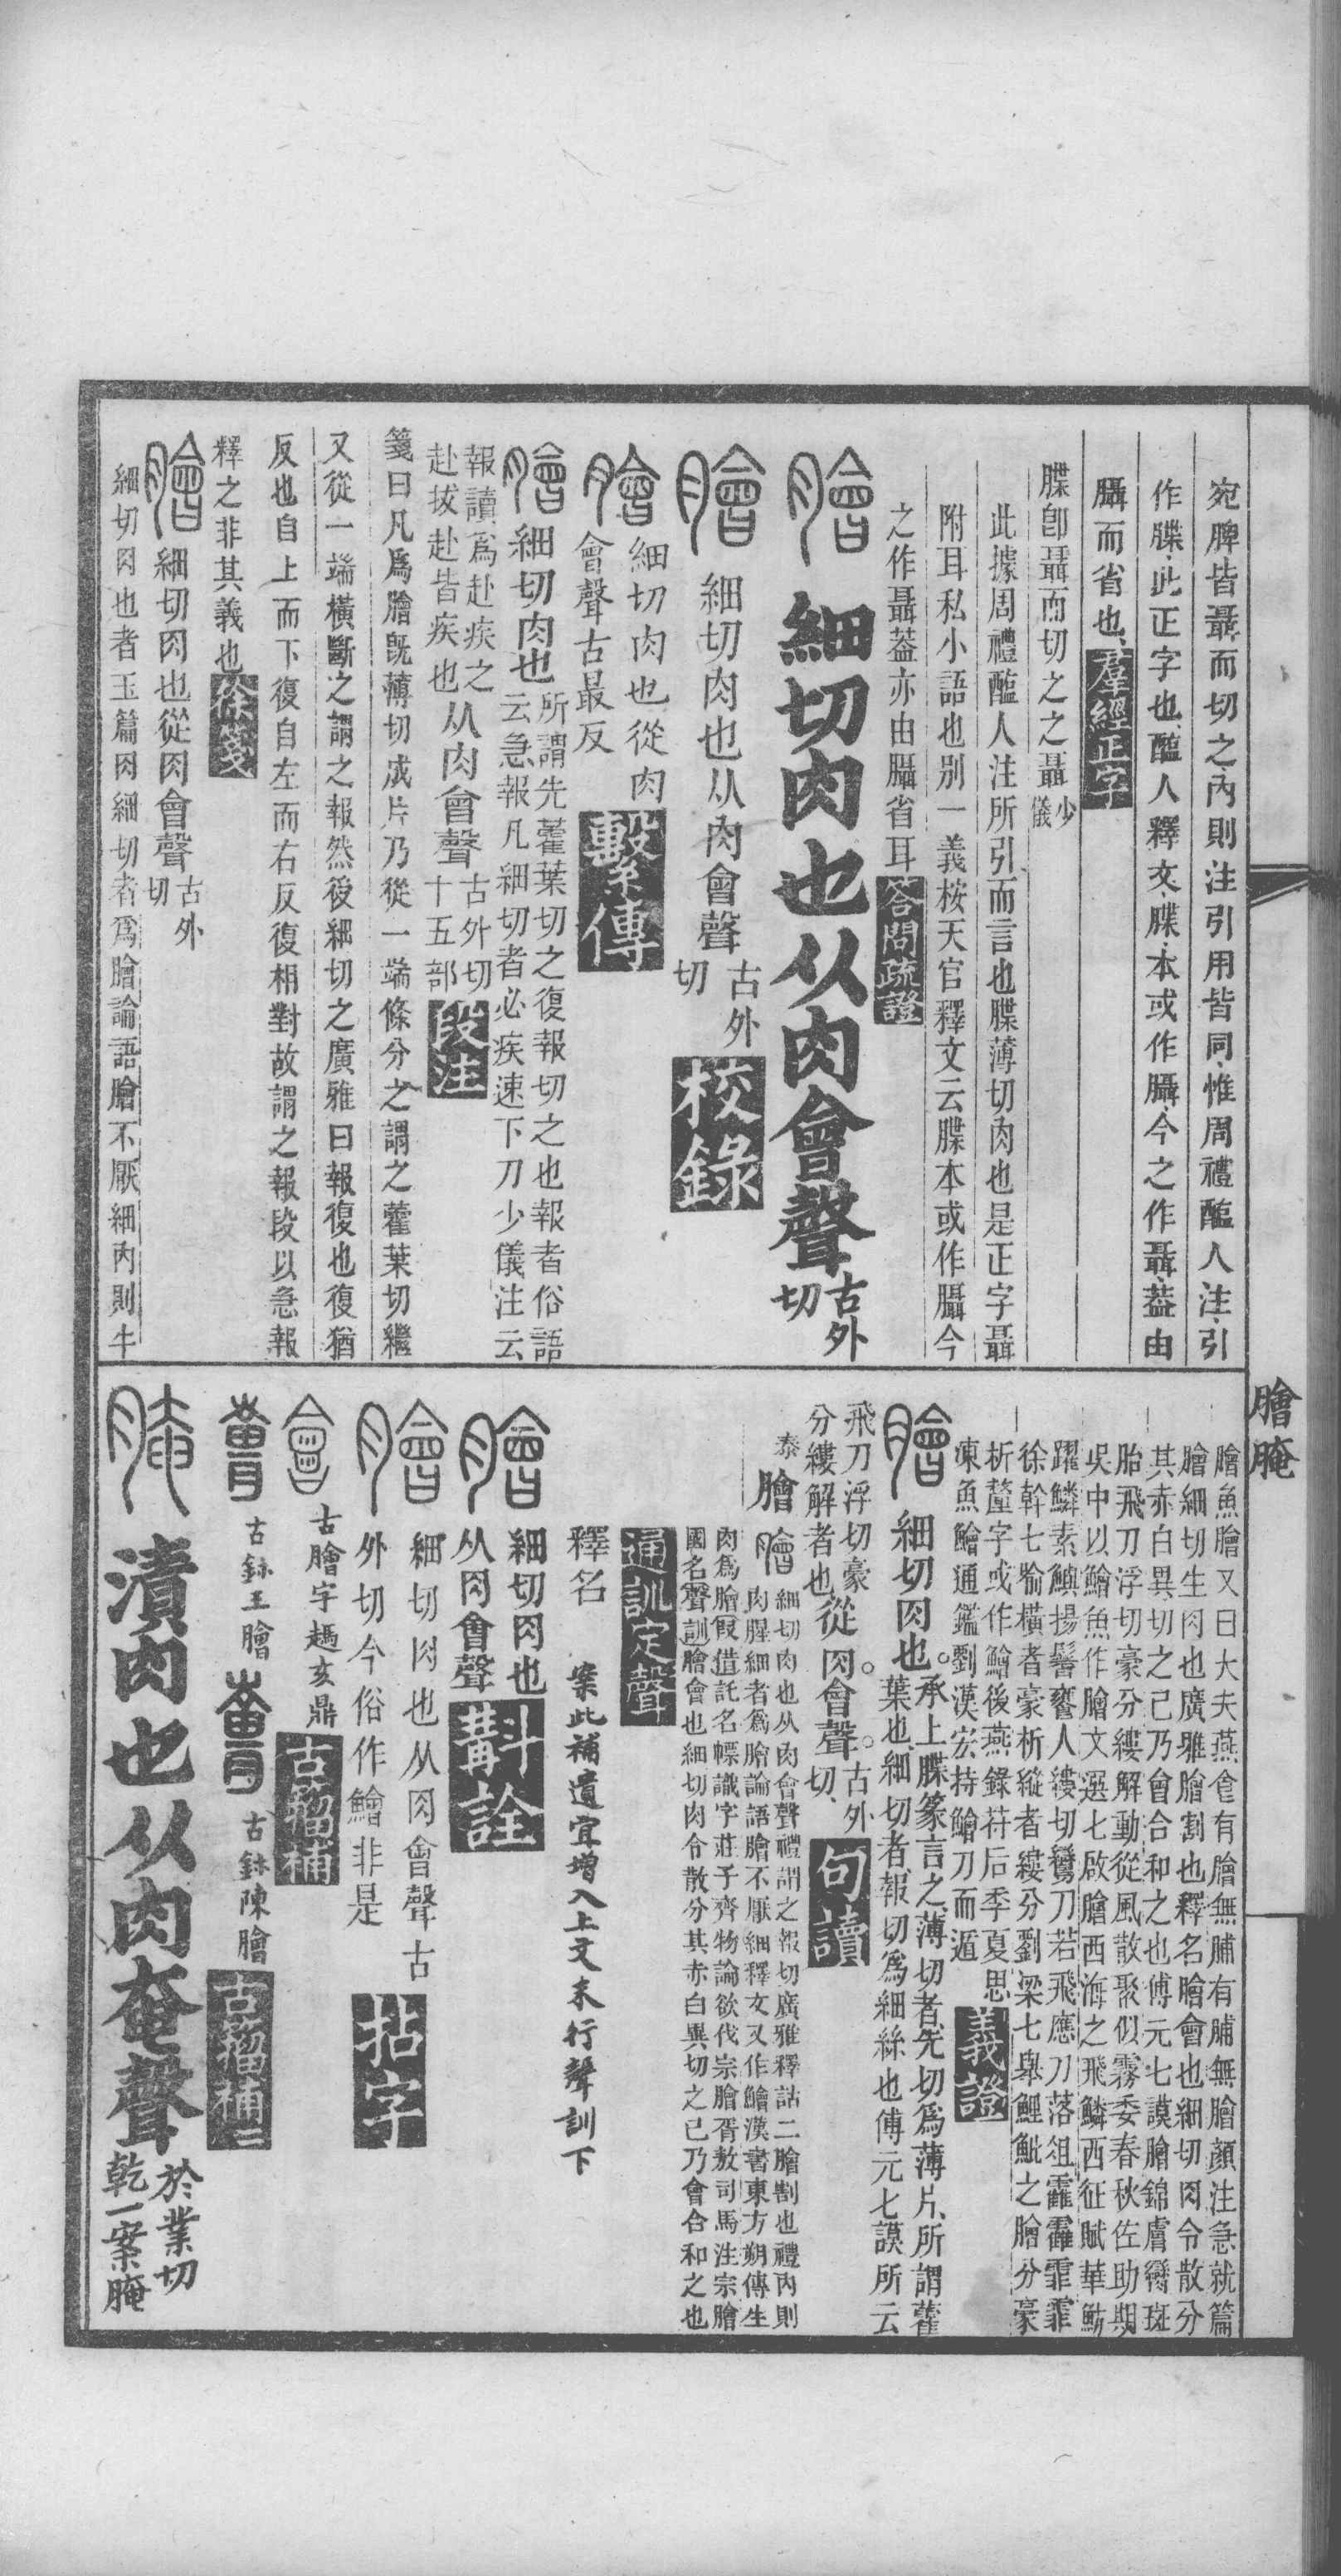 膾腌
宛脾皆聶而切之內則注引用皆同惟周禮醢人注引
作牒此正字也醢人釋文牒本或作牒今之作聶葢由
牒而省也羣經正字
牒卽聶而切之之聶少儀
此據周禮醢人注所引而言也牒薄切肉也是正字聶
附耳私小語也別一義桉天官釋文云牒本或作攝今
之作聶葢亦由攝省耳答問疏證
膾細切肉也从肉會聲古外切
膾細切肉也从肉會聲古外切校錄
膾細切肉也從肉會聲古最反繫傳
膾細切肉也所謂先藿葉切之復報切之也報者俗語云急報凡細切者必疾速下刀少儀注云
報讀爲赴疾之赴拔赴皆疾也从肉會聲古外切十五部段注
箋曰凡爲膾旣薄切成片乃從一端條分之謂之藿葉切繼
又從一端橫斷之謂之報然後細切之廣雅曰報復也復猶
反也自上而下復自左而右反復相對故謂之報段以急報
釋之非其義也徐箋
膾細切肉也從肉會聲古外切
細切肉也者玉篇肉細切者爲膾論語膾不厭細內則牛
膾魚膾又曰大夫燕食有膾無脯有脯無膾顏注急就篇
膾細切生肉也廣雅膾割也釋名膾會也細切肉令散分
其赤白異切之已乃會合和之也傅元七謨膾錦膚臠斑
胎飛刀浮切豪分縷解動從風散聚似霧委春秋佐助期
吳中以鱠魚作膾文選七啟膾西海之飛鱗西征賦華魴
躍鱗素鱮揚鬐饔人縷切鸞刀若飛應刀落俎霍霍霏霏
徐幹七喻橫者豪析縱者縷分劉梁七舉鯉魮之膾分豪
析釐字或作鱠後燕錄苻后季夏思
凍魚鱠通鑑劉漢宏持鱠刀而遁義證
膾細切肉也。承上牒篆言之薄切者先切爲薄片所謂藿葉也細切者報切爲細絲也傅元七謨所云
飛刀浮切豪分縷解者也從肉。會聲。古外切句讀
泰
膾細切肉也从肉會聲禮謂之報切廣雅釋詁二膾割也禮內則
肉腥細者爲膾論語膾不厭細釋文又作鱠漢書東方朔傳生
肉爲膾叚借託名幖識字莊子齊物論欲伐宗膾胥敖司馬注宗膾
國名聲訓膾會也細切肉令散分其赤白異切之已乃會合和之也
通訓定聲
釋名案此補遺宜增入上文末行聲訓下
膾細切肉也从肉會聲斠詮
膾細切肉也从肉會聲古
外切今俗作鱠非是拈字
古膾字趞亥鼎古籀補
古鉥王膾古鉥陳膾古籀補
腌漬肉也从肉奄聲於業切
乾一案腌